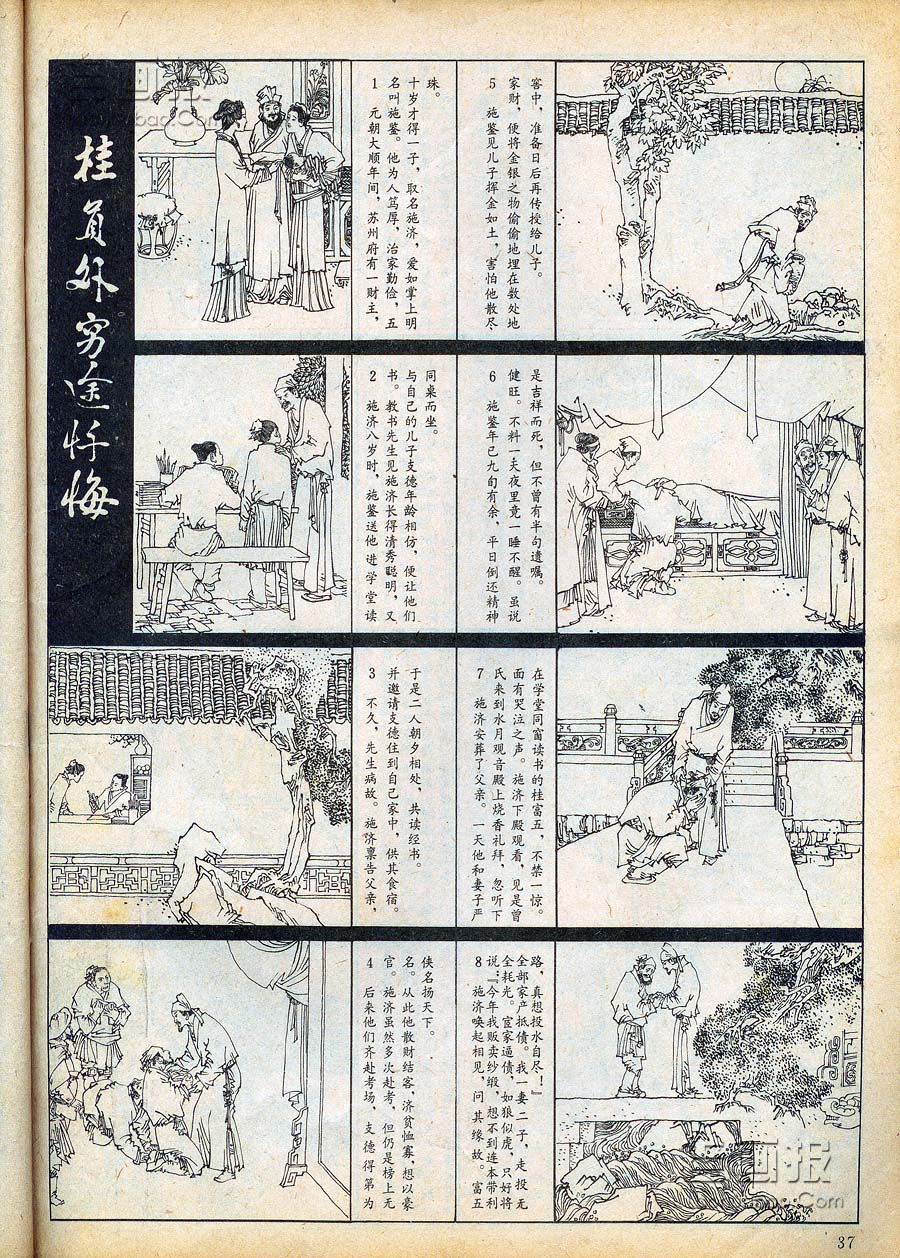 桂员外穷途忏悔
1 元朝大顺年间，苏州府有一财主，
名叫施鉴。他为人笃厚，治家勤俭，五
十岁才得一子，取名施济，爱如掌上明
珠。
2 施济八岁时，施鉴送他进学堂读
书。教书先生见施济长得清秀聪明，又
与自己的儿子支德年龄相仿，便让他们
同桌而坐。
3 不久，先生病故。施济禀告父亲，
并邀请支德住到自己家中，供其食宿。
于是二人朝夕相处，共读经书。
4 后来他们齐赴考场，支德得第为
官。施济虽然多次赴考，但仍是榜上无
名。从此他散财结客，济贫恤寡，想以豪
侠名扬天下。
5 施鉴见儿子挥金如土，害怕他散尽
家财，便将金银之物偷偷地埋在数处地
窖中，准备日后再传授给儿子。
6 施鉴年已九旬有余，平日倒还精神
健旺。不料一天夜里竟一睡不醒。虽说
是吉祥而死，但不曾有半句遗嘱。
7 施济安葬了父亲。一天他和妻子严
氏来到水月观音殿上烧香礼拜，忽听下
面有哭泣之声。施济下殿观看，见是曾
在学堂同窗读书的桂富五，不禁一惊。
8 施济唤起相见，问其缘故。富五
说：“今年我贩卖纱缎，想不到连本带利
全耗光。宦家逼债，如狼似虎，只好将
全部家产抵债。我一妻二子，走投无
路，真想投水自尽！”
画报
37